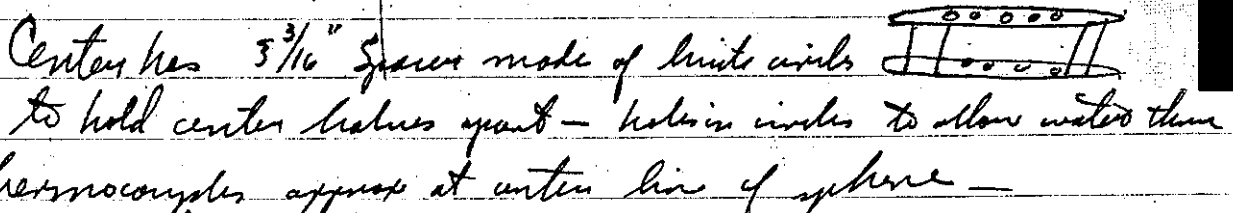 Center has 3 3/16" Spacer made of lucite circles
to hold center halves apart — holes in circles to allow water thru
hermocouples approx at center line of sphere —